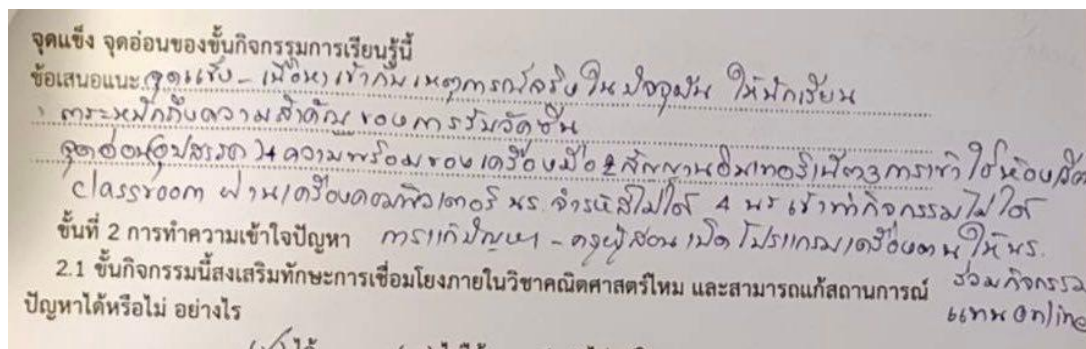 จุดแข็ง จุดอ่อนของขั้นกิจกรรมการเรียนรู้นี้
ข้อเสนอแนะ จุดแข็ง - เนื้อหาเข้ากับเหตุการณ์จริงในปัจจุบัน ให้นักเรียน
ตระหนักถึงความสำคัญของการรับวัคซีน
จุดอ่อน(อุปสรรค) 1 ความพร้อมของเครื่องมือ 2 สัญญานอินเทอร์เน็ต 3 การเข้าใช้ห้อง
classroom ผ่านเครื่องคอมพิวเตอร์ นร. จำรหัสไม่ได้ 4 นร เข้าทำกิจกรรมไม่ได้
ขั้นที่ 2 การทำความเข้าใจปัญหา การแก้ปัญหา - ครูผู้สอนเปิดโปรแกรมเครื่องตนให้นร.
2.1 ขั้นกิจกรรมนี้สงเสริมทักษะการเชื่อมโยงภายในวิชาคณิตศาสตร์ไหม และสามารถแก้สถานการณ์ ร่วมกิจกรรม
ปัญหาได้หรือไม่ อย่างไร แทน Online